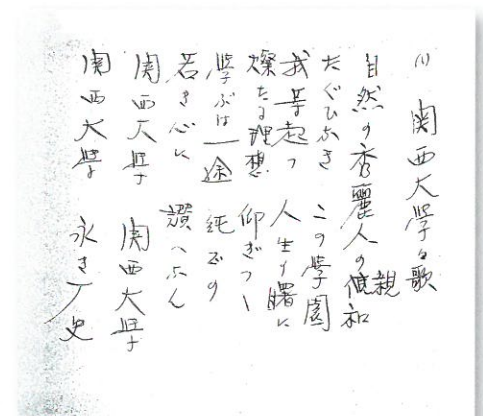 (1) 関西大學々歌
自然の秀麗人の親和
たぐひなき この學園
我等起つ 人生の曙に
燦たる理想 仰ぎつゝ
學ぶは一途 純正の
若き心に 讃へなん
関西大學 関西大學
関西大學 永き厂史